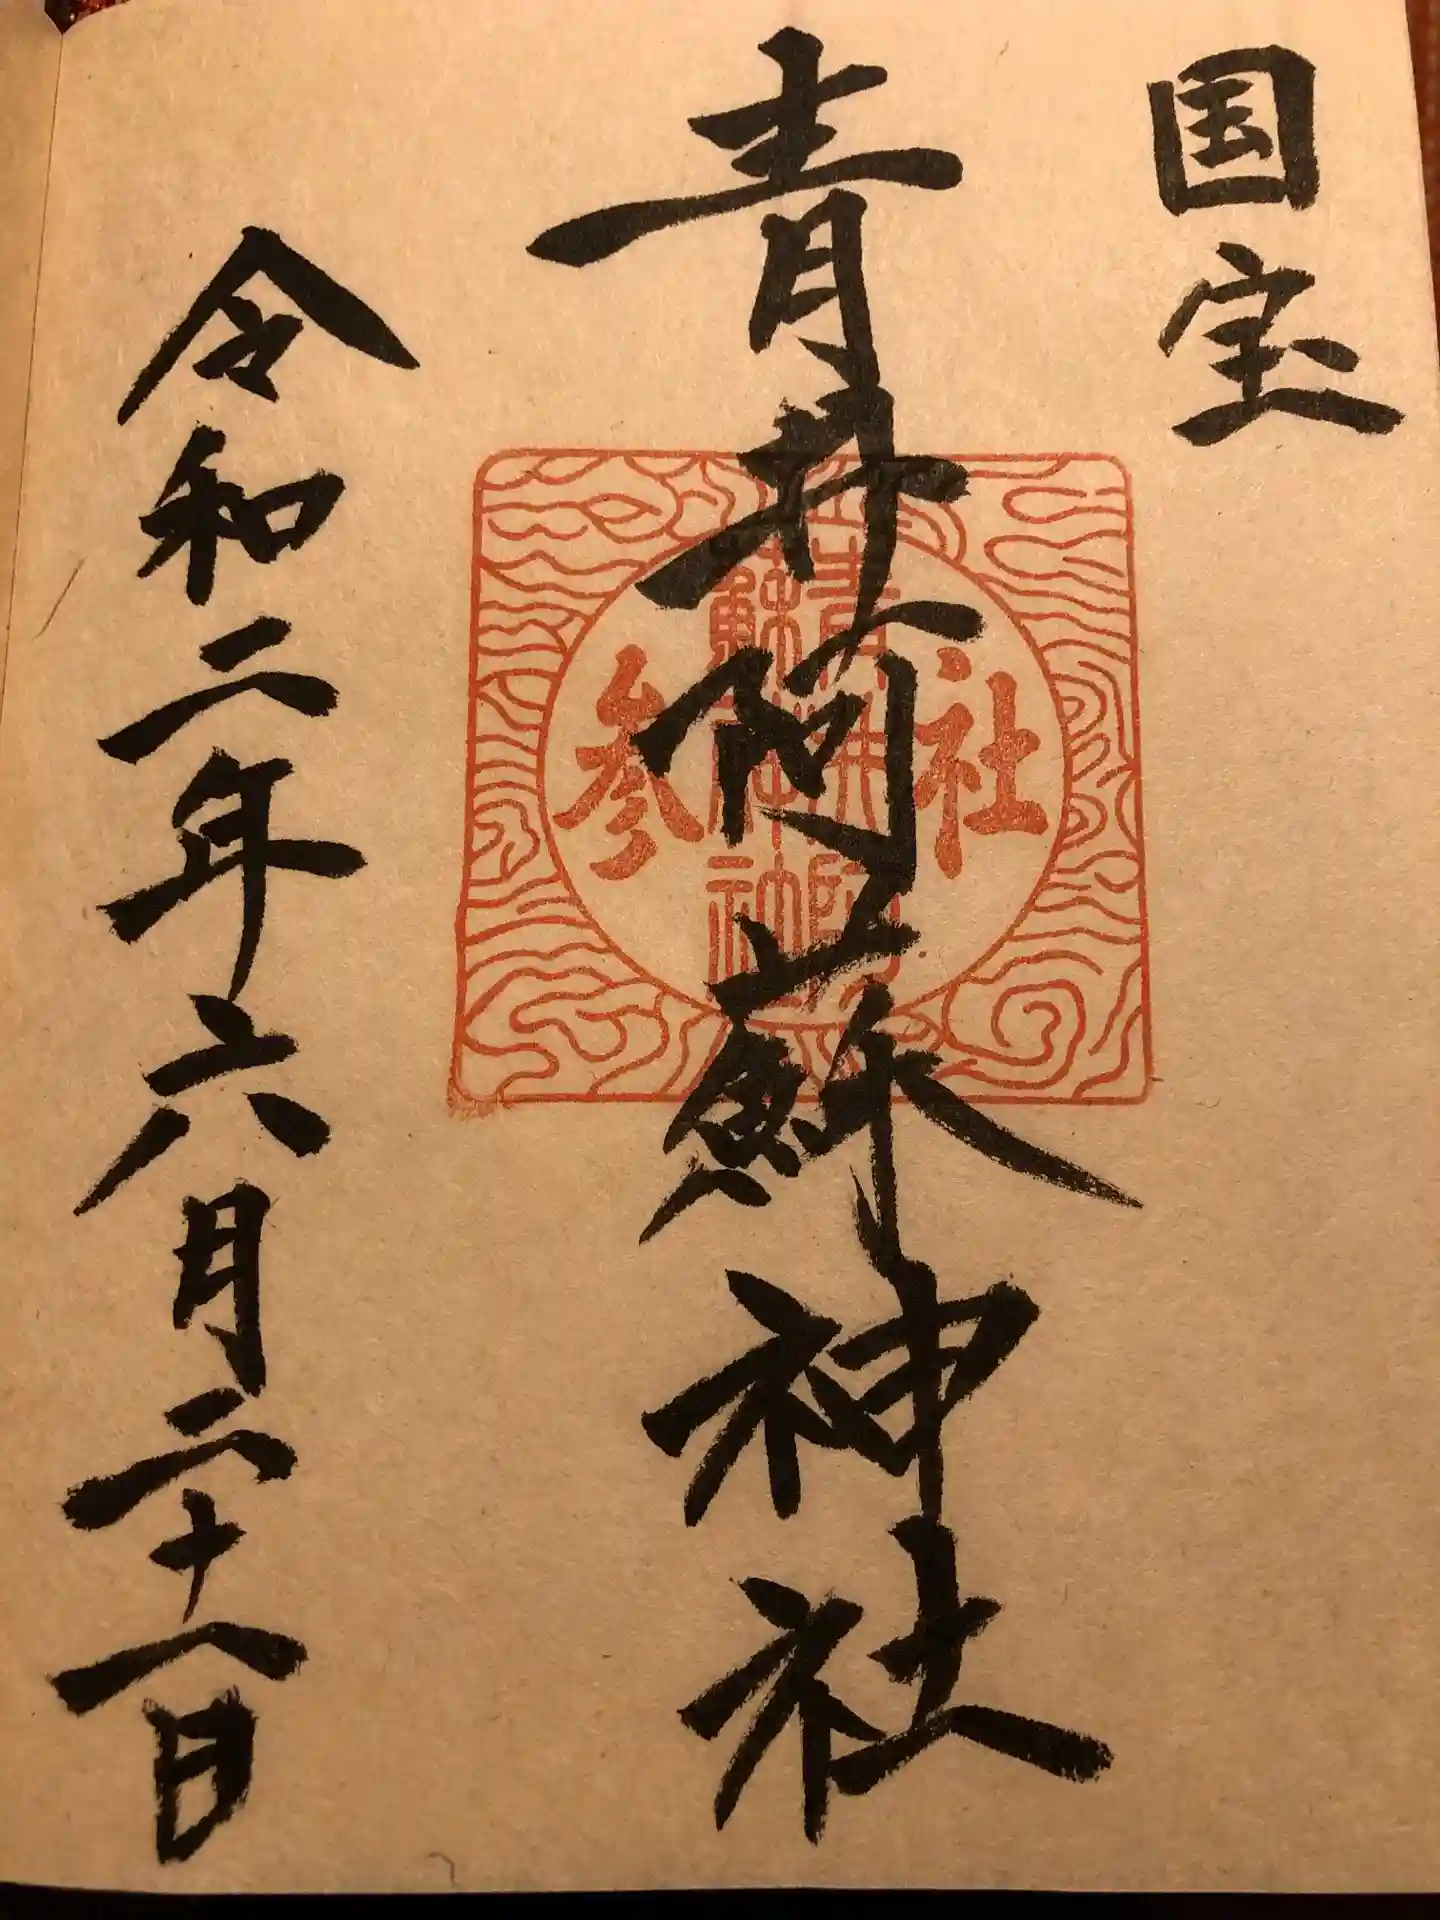 国宝
青井阿蘇神社
社参
青井阿
蘇神社
令和二年六月二十八日